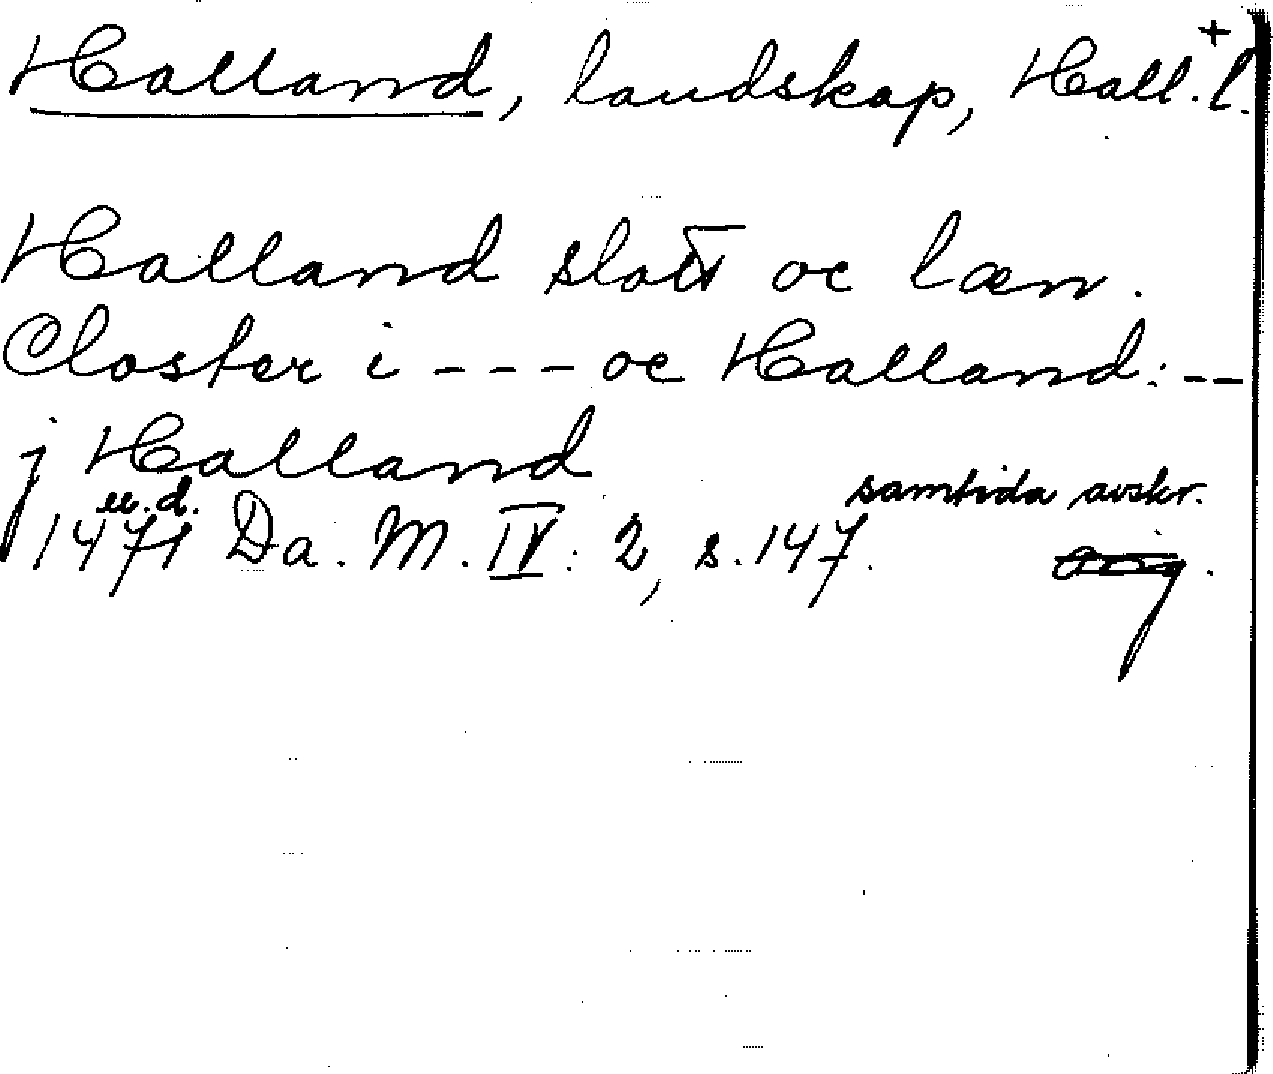 Halland, landskap, Hall. l. +
Halland slott oc læn.
Closter i --- oc Halland: --
j Halland
u. d. samtida avskr.
1471 Da. M. IV: 2, s. 147. orig.